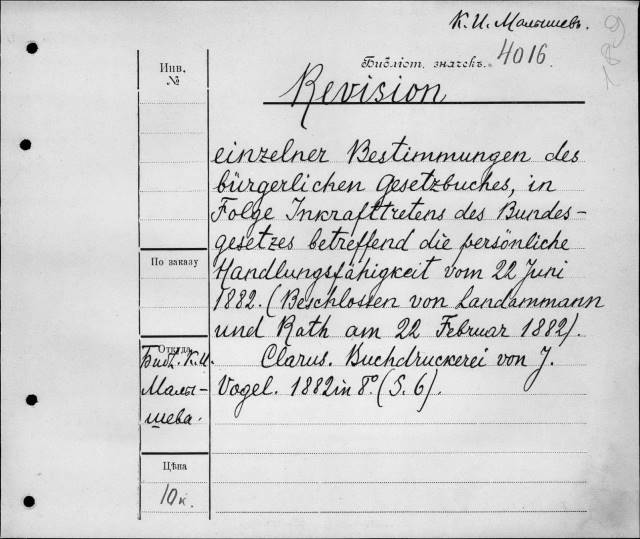 К. И. Малышевъ.
189
Библіот. значекъ. 4016.
Инв. №
Revision
einzelner Bestimmungen des
bürgerlichen Gesetzbuches, in
Folge Inkrafttretens des Bundes-
gesetzes betreffend die persönliche
По заказу
Handlungsfähigkeit vom 22 Juni
1882. (Beschlossen von Landammann
und Rath am 22 Februar 1882).
Откуда
Библ. К. И.
Clarus. Buchdruckerei von J.
Малы-
Vogel. 1882 in 8°. (S. 6).
шева.
Цѣна
10 к.